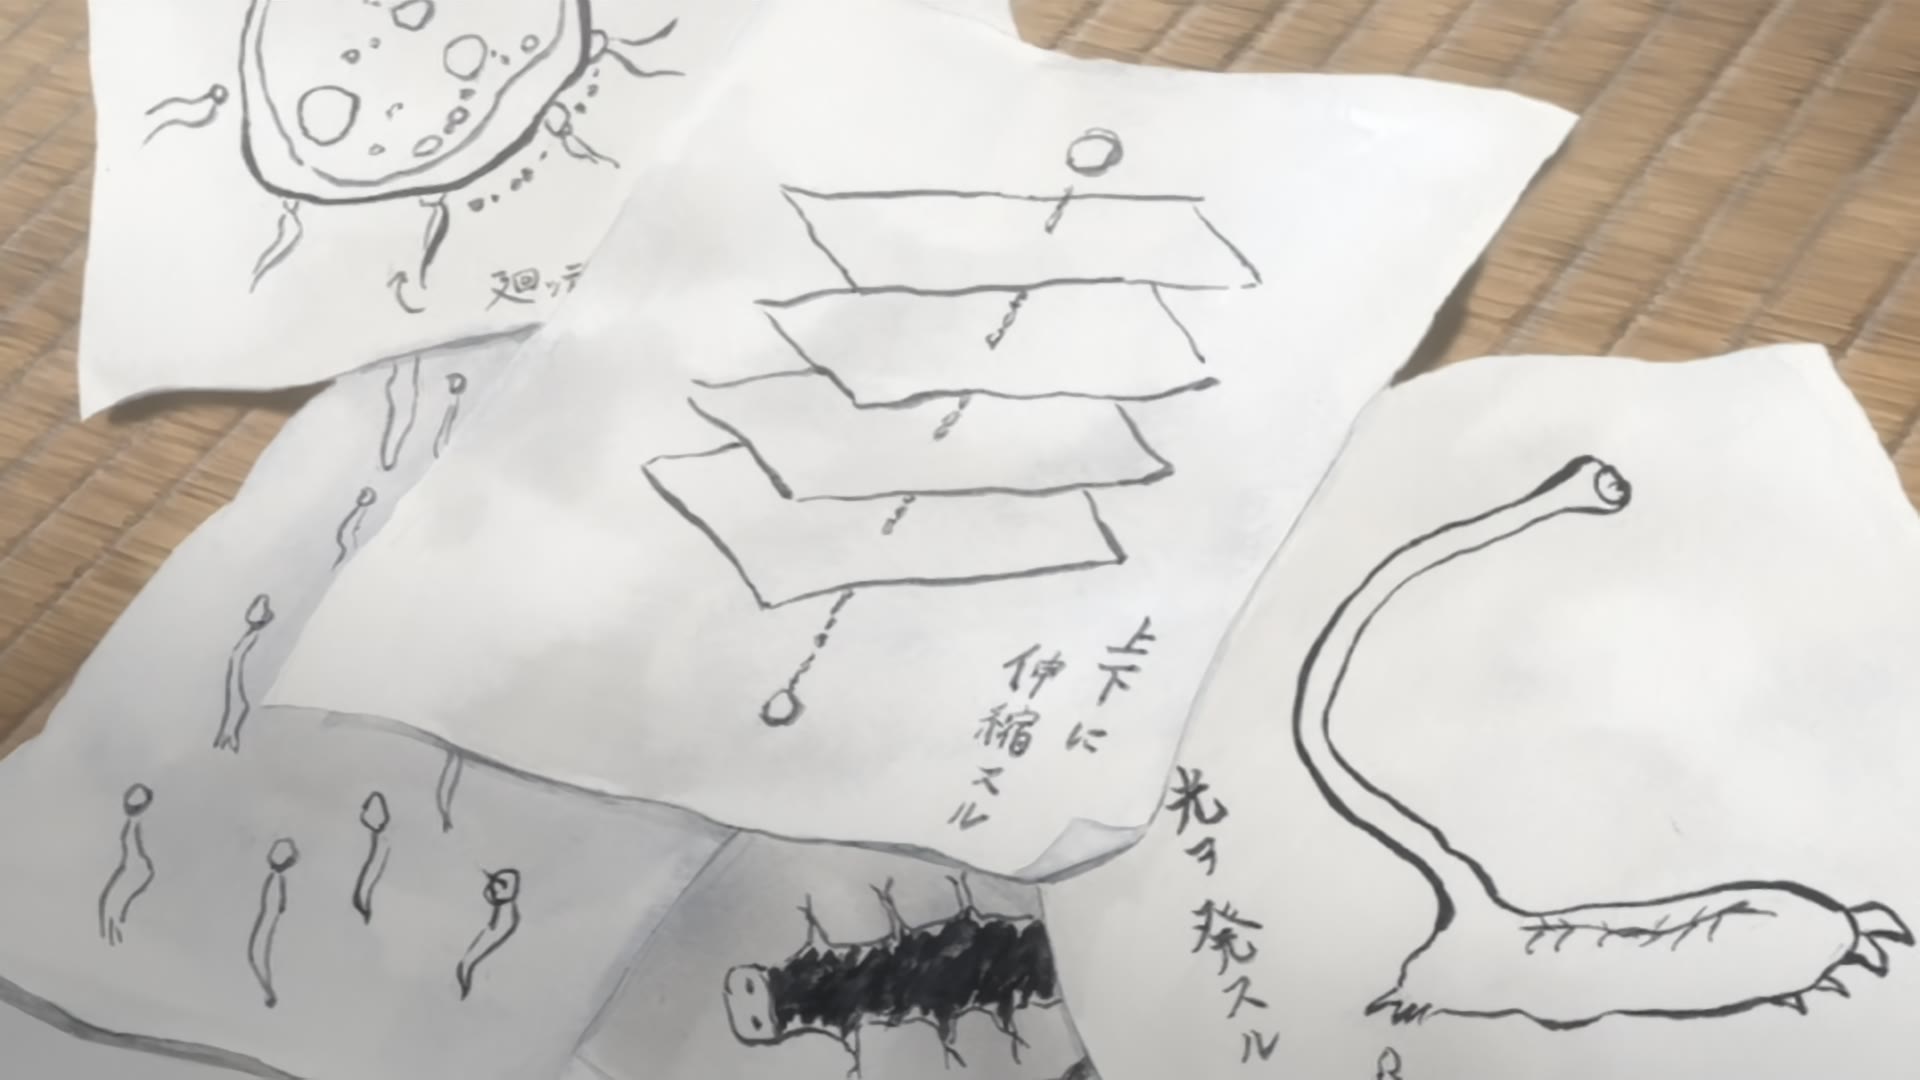 廻ッテ
上下に
伸縮スル
光ヲ発スル